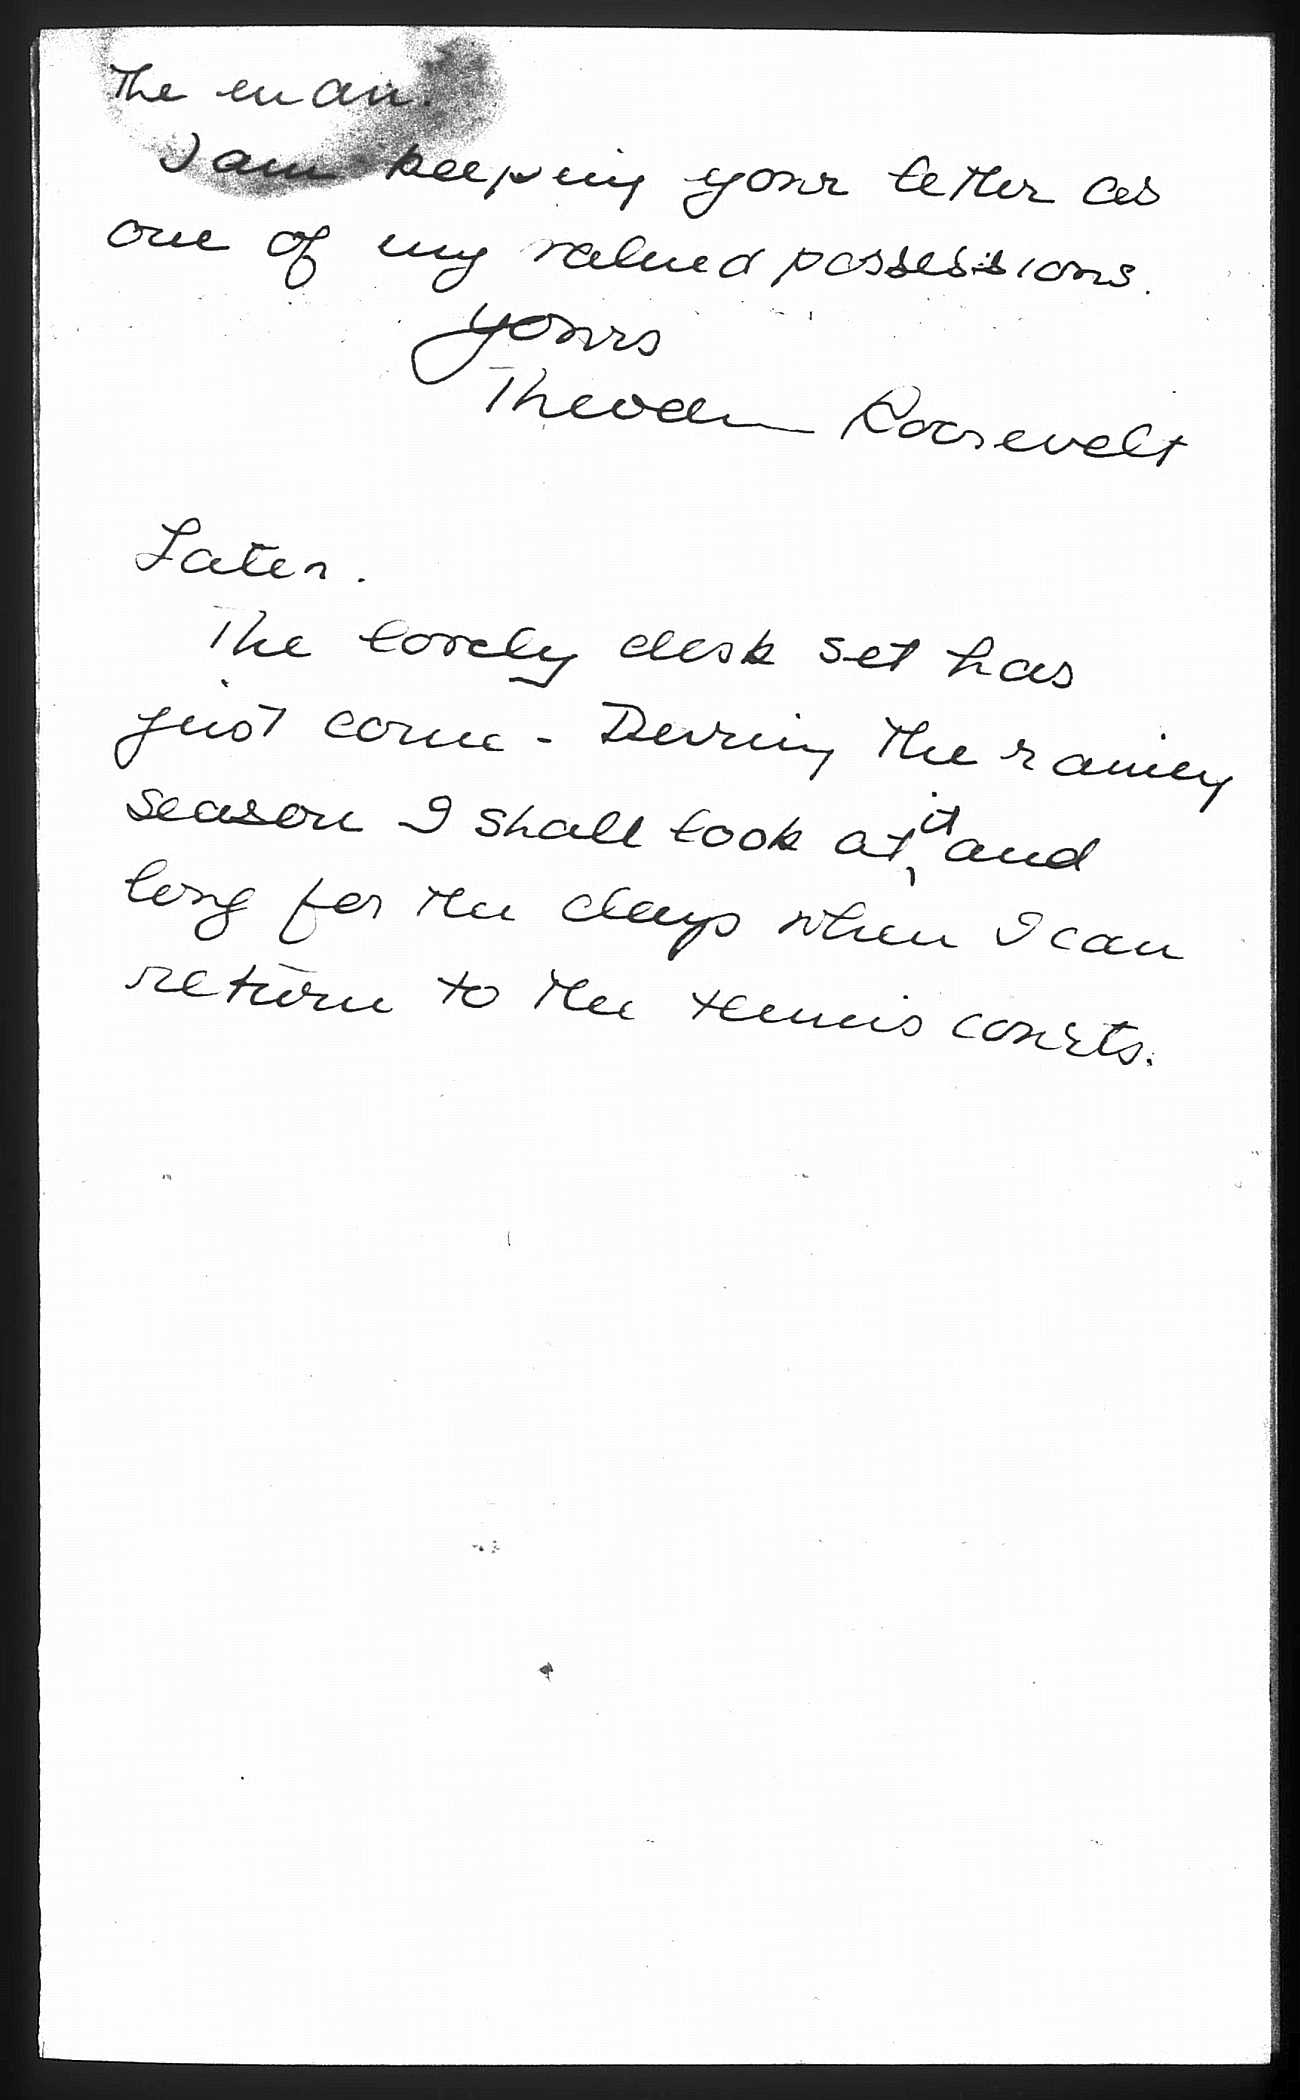 The man.
I am keeping your letter as
one of my valued possessions.
yours
Theodore Roosevelt
Later.
The lovely desk set has
just come - During the rainy
season I shall look at it and
long for the days when I can
return to the tennis courts.